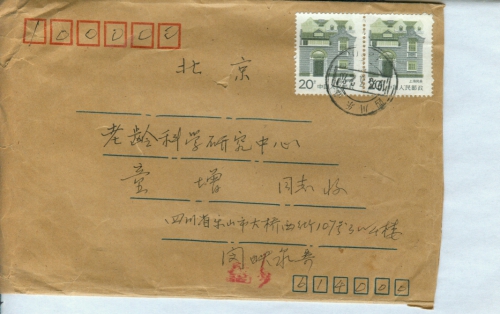 100000
20分 中国人民邮政
20分 中国人民邮政
北京
老龄科学研究中心
童增 同志收
四川省乐山市大桥西街107号
614000